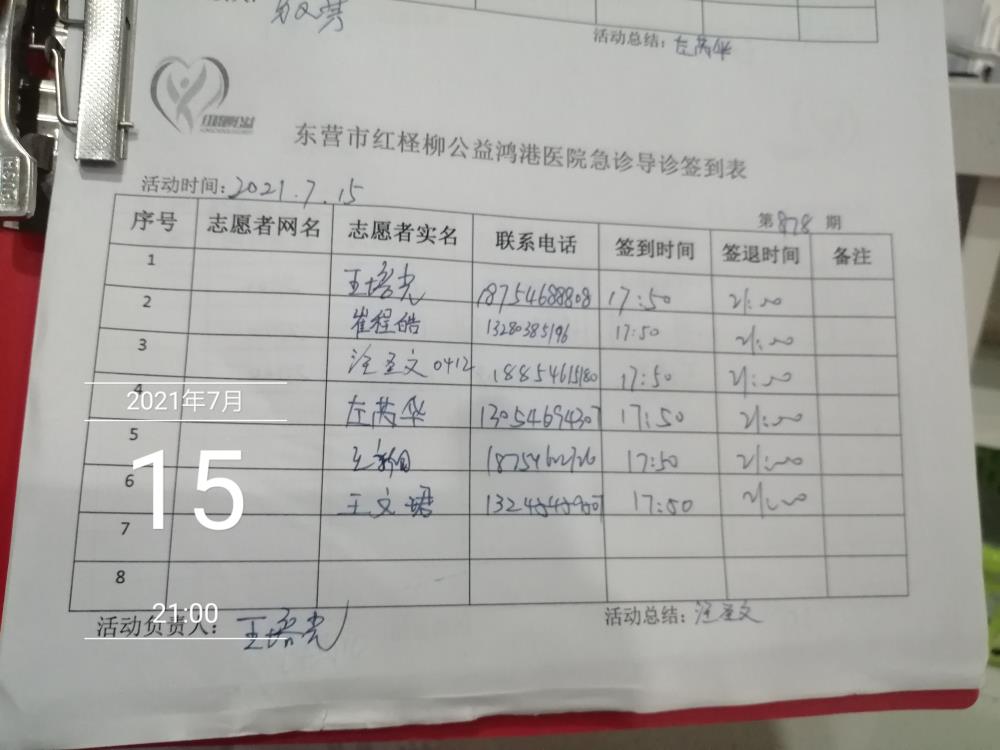 活动总结：左芮华
东营市红柽柳公益鸿港医院急诊导诊签到表
活动时间：2021.7.15
第878期
序号 志愿者网名 志愿者实名 联系电话 签到时间 签退时间 备注
1 王培光 18754688808 17:50 21:00
2 崔程皓 13280385196 17:50 21:00
3 汪圣文0412 18854615180 17:50 21:00
4 左芮华 13054694307 17:50 21:00
5 17:50 21:00
6 王文 17:50 21:00
7
8
活动负责人：王培光
活动总结：汪圣文
2021年7月
15
21:00